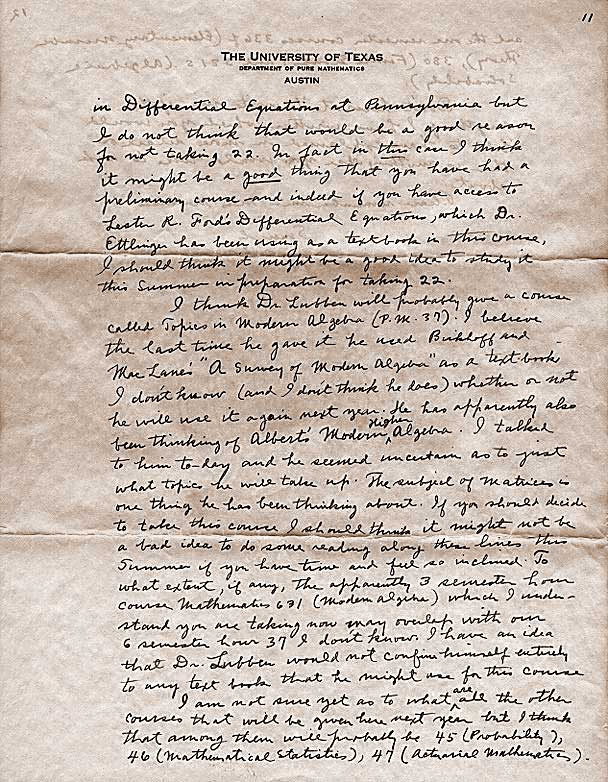 11
THE UNIVERSITY OF TEXAS
DEPARTMENT OF PURE MATHEMATICS
AUSTIN
in Differential Equations at Pennsylvania but
I do not think that would be a good reason
for not taking 22. In fact in this case I think
it might be a good thing that you have had a
preliminary course and indeed if you have access to
Lester R. Ford's Differential Equations, which Dr.
Ettlinger has been using as a textbook in this course,
I should think it might be a good idea to study it
this Summer in preparation for taking 22.
I think Dr Lubben will probably give a course
called Topics in Modern Algebra (P.M. 37). I believe
the last time he gave it he used Birkhoff and
Mac Lane's "A Survey of Modern Algebra" as a text book
I don't know (and I don't think he does) whether or not
he will use it again next year. He has apparently also
been thinking of Albert's Modern Higher Algebra. I talked
to him to-day and he seemed uncertain as to just
what topics he will take up. The subject of Matrices is
one thing he has been thinking about. If you should decide
to take this course I should think it might not be
a bad idea to do some reading along these lines this
Summer if you have time and feel so inclined. To
what extent, if any, the apparently 3 semester hour
course Mathematics 631 (Modern algebra) which I under-
stand you are taking now may overlap with our
6 semester hour 37 I don't know. I have an idea
that Dr. Lubben would not confine himself entirely
to any text book that he might use for this course
I am not sure yet as to what are all the other
courses that will be given here next year but I think
that among them will probably be 45 (Probability),
46 (Mathematical Statistics), 47 (Actuarial Mathematics).